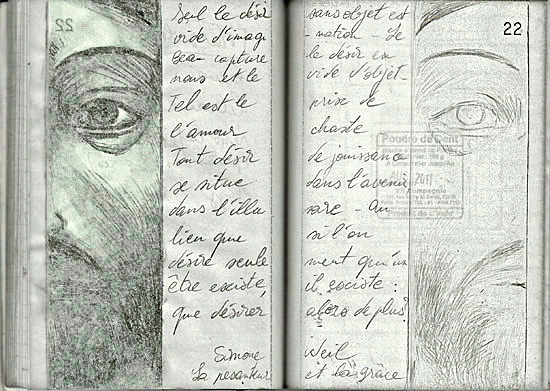 22
Seul le désir
vide d'imagi
Beau capture
nous et le
Tel est le
l'amour
Tout désir
se situe
dans l'illu
lieu que
désire seule
être existe,
que désirer
Simone
La pesanteur
22
sans objet est
-nation - Le
le désir en
vide d'objet -
prise de
chaste
de jouissance
dans l'avenir
soire - Au
si l'on
ment qu'un
il existe :
alors de plus?
Weil
et la grâce
Poudre de Dent
2011
Compagnie
Produit de l'Inde